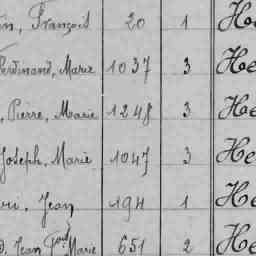 François 20 1
Ferdinand, Marie 1037 3 He
, Pierre, Marie 1248 3 He
Joseph, Marie 1047 3 He
Jean 194 1 He
Jean Marie 651 2 He